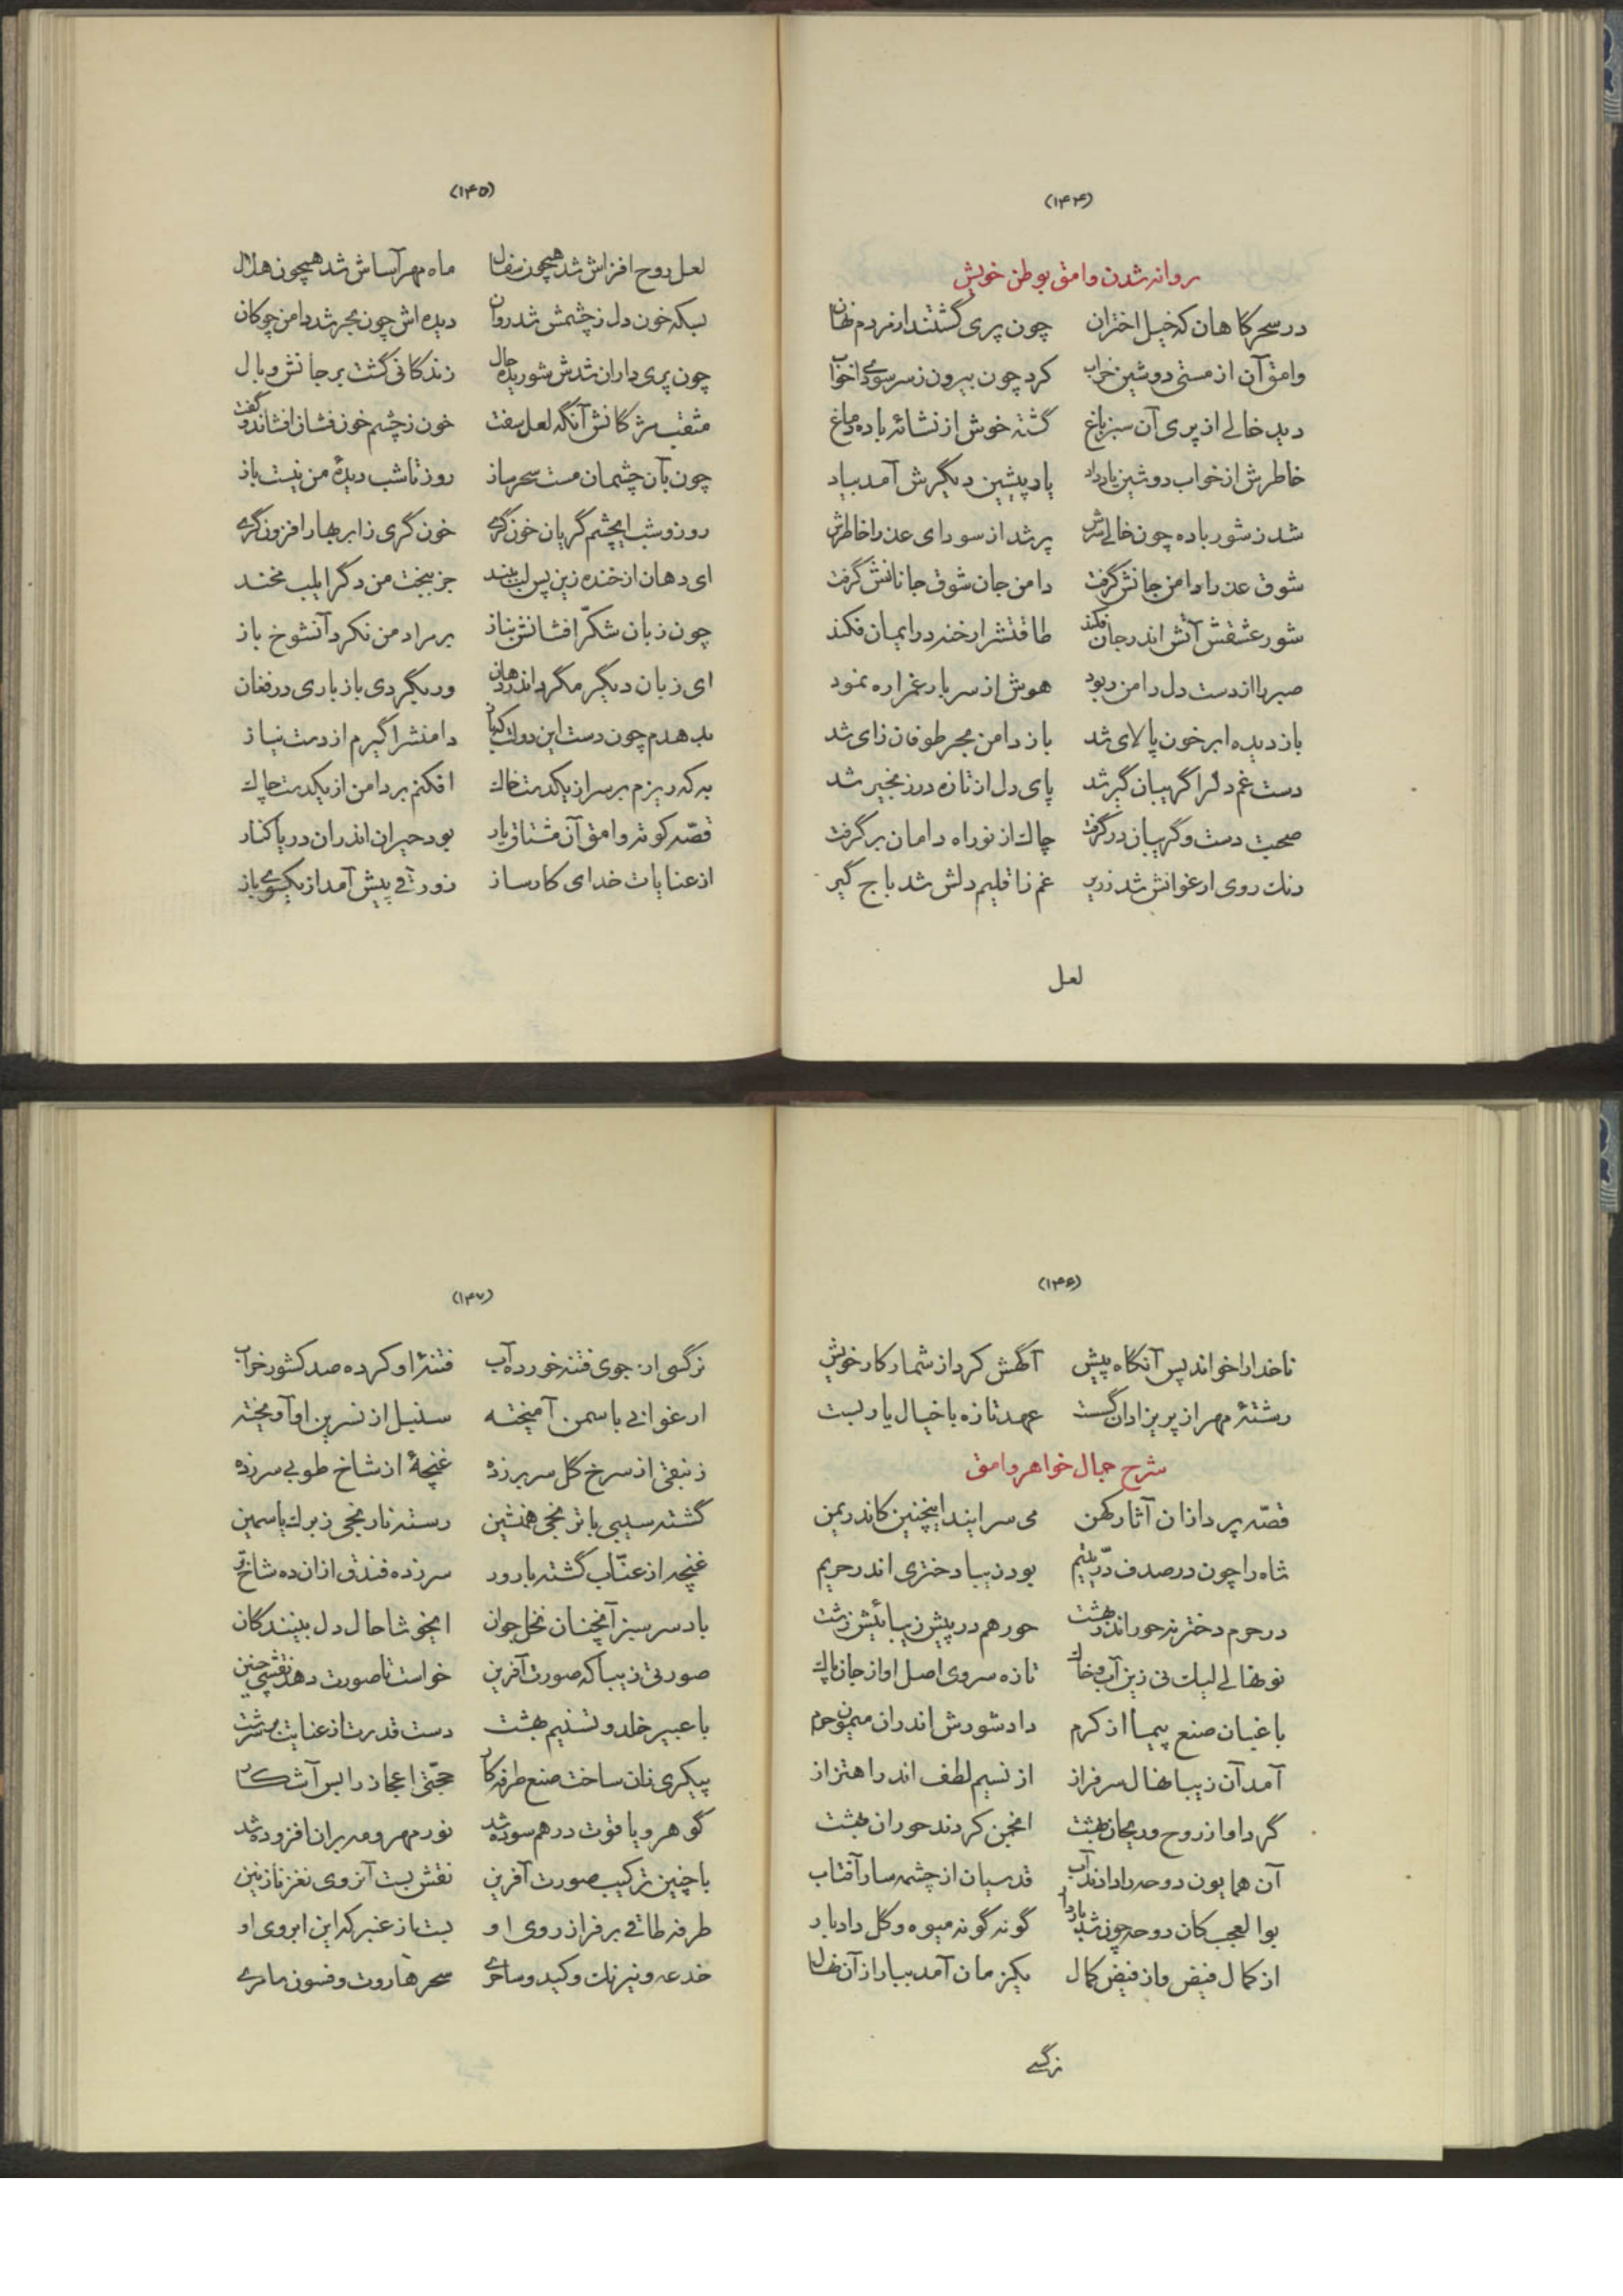 (۱۴۴)
روانه شدن وامق بوطن خویش
در سحرگاهان که خیل اختران چون پری گشتند از مردم نهان
وامق آن از مستی دوشین خراب کرد چون بیرون ز سر سودای خواب
دید خالی از پری آن سبز باغ گشته خوش از نشائه باده دماغ
خاطرش از خواب دوشین یاد داد یاد پیشین دیگرش آمد بیاد
شد ز شور باده چون خالی سرش پر شد از سودای عذرا خاطرش
شوق عذرا دامن جانش گرفت دامن جان شوق جانانش گرفت
شور عشقش آتش اندر جان فکند طاقتش را رخنه در ایمان فکند
صبر را از دست دل دامن ربود هوش از سر بار غم را ره نمود
باز دیده ابر خون پالای شد باز دامن بحر طوفان زای شد
دست غم دل را گریبان گیر شد پای دل از تازه در زنجیر شد
صحبت دست و گریبان در گرفت چاك از نو راه دامان بر گرفت
رنك روی ارغوانش شد زریر غم ز اقلیم دلش شد باج گیر
لعل
(۱۴۵)
لعل روح افزاش شد همچون سفال ماه مهرآساش شد همچون هلال
بسکه خون دل ز چشمش شد روان دیده اش چون بحر شد دامن چو کان
چون پری داران شدش شوریده حال زندکانی گشت بر جانش وبال
مثقب مژگانش آنگه لعل سفت خون ز چشم خون فشان افشاند و گفت
چون بآن چشمان مست سحر ساز روز تا شب دیدهٔ من نیست باز
روز و شب ایچشم گریان خون گری خون گری ز ابر بهار افزون گری
ای دهان از خنده زین پس لب ببند جز ببخت من دگر ایلب مخند
چون زبان شکّر افشانش بناز بر مراد من نکرد آنشوخ باز
ای زبان دیگر مگرد اندر دهان ور بگردی باز باری در فغان
بد هدم چون دست این دولت کجا دامنش را گیرم از دست نیاز
به که ریزم بر سر از یکدست خاك افکنم بر دامن از یکدست چاك
قصّه کوته وامق آن مشتاق یار بود حیران اندران دریا کنار
از عنایات خدای کارساز زورقی پیش آمد از یکسوی باز
(۱۴۶)
ناخدا را خواند پس آنگاه پیش آگهش کرد از شمار کار خویش
رشتهٔ مهر از پریزادان گسست عهد تازه با خیال یار بست
شرح جمال خواهر وامق
قصّه پردازان آثار کهن می سرایند اینچنین کاندر یمن
شاه را چون در صدف درّ یتیم بود زیبا دختری اندر حریم
در حرم دختر نه حور اندر بهشت حور هم در پیش زیبائیش زشت
نو نهالی لیك نی زین آب و خاك تازه سروی اصل او از جان پاك
باغبان صنع پیما از کرم داد شورش اندران میمون حرم
آمد آن زیبا نهال سرفراز از نسیم لطف اندر اهتزاز
گرد او از روح و ریحان بهشت انجمن کردند حوران بهشت
آن همایون دوحه را دادند آب قدسیان از چشمه سار آفتاب
بوالعجب کان دوحه چون شد باردار گونه گونه میوه و گل داد بار
از کمال فیض و از فیض کمال یکزمان آمد ببار از آن نهال
نرگسی
(۱۴۷)
نرگسی از جوی فتنه خورده آب فتنهٔ او کرده صد کشور خراب
ارغوانی با سمن آمیخته سنبل از نسرین او آویخته
زنبقی از سرخ گل سر برزده غنچهٔ از شاخ طوبی سر زده
گشته سیبی با ترنجی همنشین رسته نارنجی ز برك یاسمین
غنچه از عنّاب گشته بارور سر زده فندق از آن ده شاخ تر
باد سر سبز آنچنان نخل جوان ایخوشا حال دل بینندکان
صورتی زیبا که صورت آفرین خواست تا صورت دهد نقشی چنین
با عبیر خلد و تسنیم بهشت دست قدرت از عنایت بر سرشت
پیکری زان ساخت صنع طرفه کار حجّتی اعجاز را بس آشکار
گوهر و یاقوت در هم سوده شد نور مهر و مه بر آن افزوده شد
با چنین ترکیب صورت آفرین نقش بست آنروی نغز نازنین
طرفه طاقی بر فراز روی او بست از عنبر که این ابروی او
خدعه و نیرنك و کید و ساحری سحر هاروت و فسون سامری